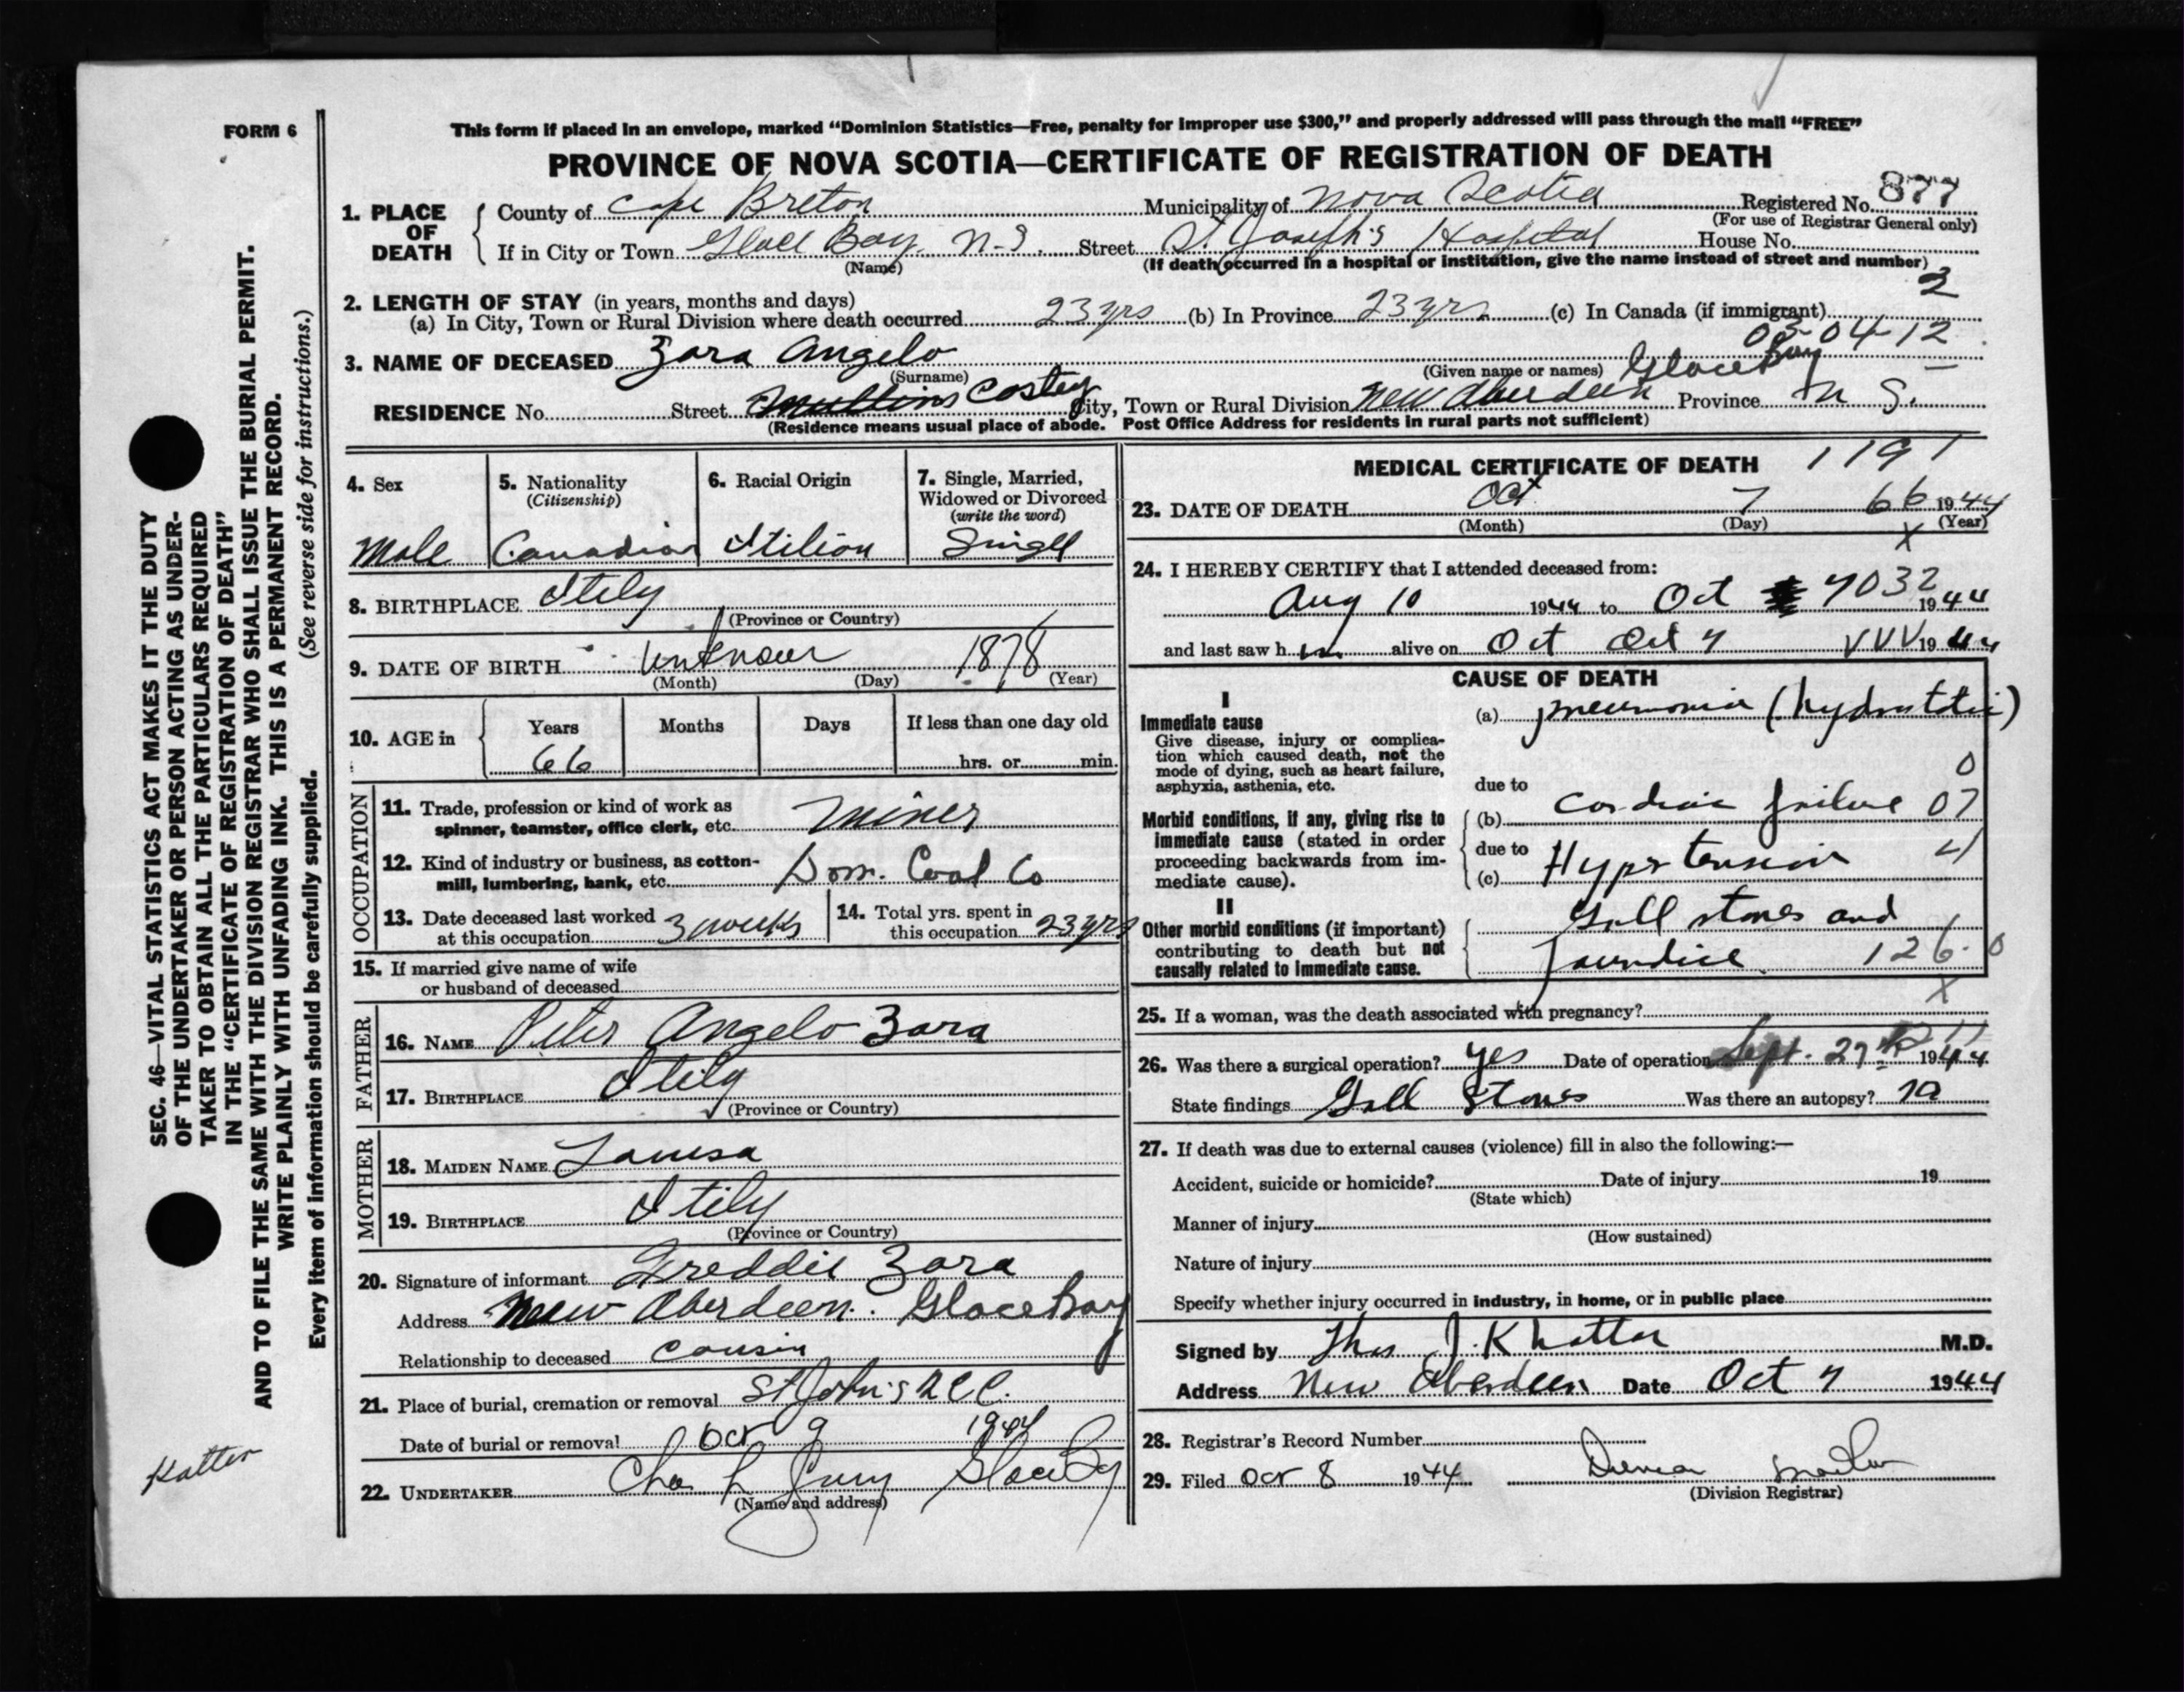 FORM 6
This form if placed in an envelope, marked “Dominion Statistics—Free, penalty for improper use $300,” and properly addressed will pass through the mail “FREE”
PROVINCE OF NOVA SCOTIA—CERTIFICATE OF REGISTRATION OF DEATH
1. PLACE OF DEATH { County of Cape Breton Municipality of Nova Scotia Registered No. 877
(For use of Registrar General only)
If in City or Town Glace Bay N-S. Street St. Joseph's Hospital House No.
(Name) (If death occurred in a hospital or institution, give the name instead of street and number)
2
2. LENGTH OF STAY (in years, months and days)
(a) In City, Town or Rural Division where death occurred 23 yrs (b) In Province 23 yrs (c) In Canada (if immigrant)
03-04-12
3. NAME OF DECEASED Zara Angelo
(Surname) (Given name or names) Glace Bay
RESIDENCE No. Street Costey City, Town or Rural Division New Aberdeen Province N S.
(Residence means usual place of abode. Post Office Address for residents in rural parts not sufficient)
4. Sex 5. Nationality (Citizenship) 6. Racial Origin 7. Single, Married, Widowed or Divorced (write the word)
Male Canadian Itilion Singll
8. BIRTHPLACE Itily
(Province or Country)
9. DATE OF BIRTH Unknown 1878
(Month) (Day) (Year)
10. AGE in { Years Months Days If less than one day old
66 hrs. or min.
OCCUPATION
11. Trade, profession or kind of work as spinner, teamster, office clerk, etc. Miner
12. Kind of industry or business, as cotton-mill, lumbering, bank, etc. Dom. Coal Co
13. Date deceased last worked at this occupation 3 weeks 14. Total yrs. spent in this occupation 23 yrs
15. If married give name of wife
or husband of deceased
FATHER
16. NAME Peter Angelo Zara
17. BIRTHPLACE Itily
(Province or Country)
MOTHER
18. MAIDEN NAME Louisa
19. BIRTHPLACE Itily
(Province or Country)
20. Signature of informant Freddie Zara
Address New Aberdeen. Glace Bay
Relationship to deceased Cousin
21. Place of burial, cremation or removal St John's
Date of burial or removal Oct 9 1944
22. UNDERTAKER Chas L Glace Bay
(Name and address)
MEDICAL CERTIFICATE OF DEATH 1191
23. DATE OF DEATH Oct. 7 66 1944
(Month) (Day) (Year)
X
24. I HEREBY CERTIFY that I attended deceased from:
Aug 10 1944 to Oct 7 032 1944
and last saw h im alive on Oct Oct 7 VVV 1944
CAUSE OF DEATH
I
Immediate cause
Give disease, injury or complication which caused death, not the mode of dying, such as heart failure, asphyxia, asthenia, etc.
(a) pneumonia (hydrostatic)
0
due to
Morbid conditions, if any, giving rise to immediate cause (stated in order proceeding backwards from immediate cause).
(b) Cardiac failure 07
due to 4
(c) Hypertension
II
Other morbid conditions (if important) contributing to death but not causally related to immediate cause.
Gall stones and
Jaundice 126.0
X
25. If a woman, was the death associated with pregnancy?
26. Was there a surgical operation? yes Date of operation Sept. 27th 1944
State findings Gall Stones Was there an autopsy? no
27. If death was due to external causes (violence) fill in also the following:—
Accident, suicide or homicide? Date of injury 19
(State which)
Manner of injury
(How sustained)
Nature of injury
Specify whether injury occurred in industry, in home, or in public place
Signed by Thos J. Khattar M.D.
Address New Aberdeen Date Oct 7 1944
28. Registrar's Record Number
29. Filed Oct 8 1944
(Division Registrar)
SEC. 46—VITAL STATISTICS ACT MAKES IT THE DUTY
OF THE UNDERTAKER OR PERSON ACTING AS UNDER-
TAKER TO OBTAIN ALL THE PARTICULARS REQUIRED
IN THE “CERTIFICATE OF REGISTRATION OF DEATH”
AND TO FILE THE SAME WITH THE DIVISION REGISTRAR WHO SHALL ISSUE THE BURIAL PERMIT.
WRITE PLAINLY WITH UNFADING INK. THIS IS A PERMANENT RECORD.
Every item of information should be carefully supplied. (See reverse side for instructions.)
Katter